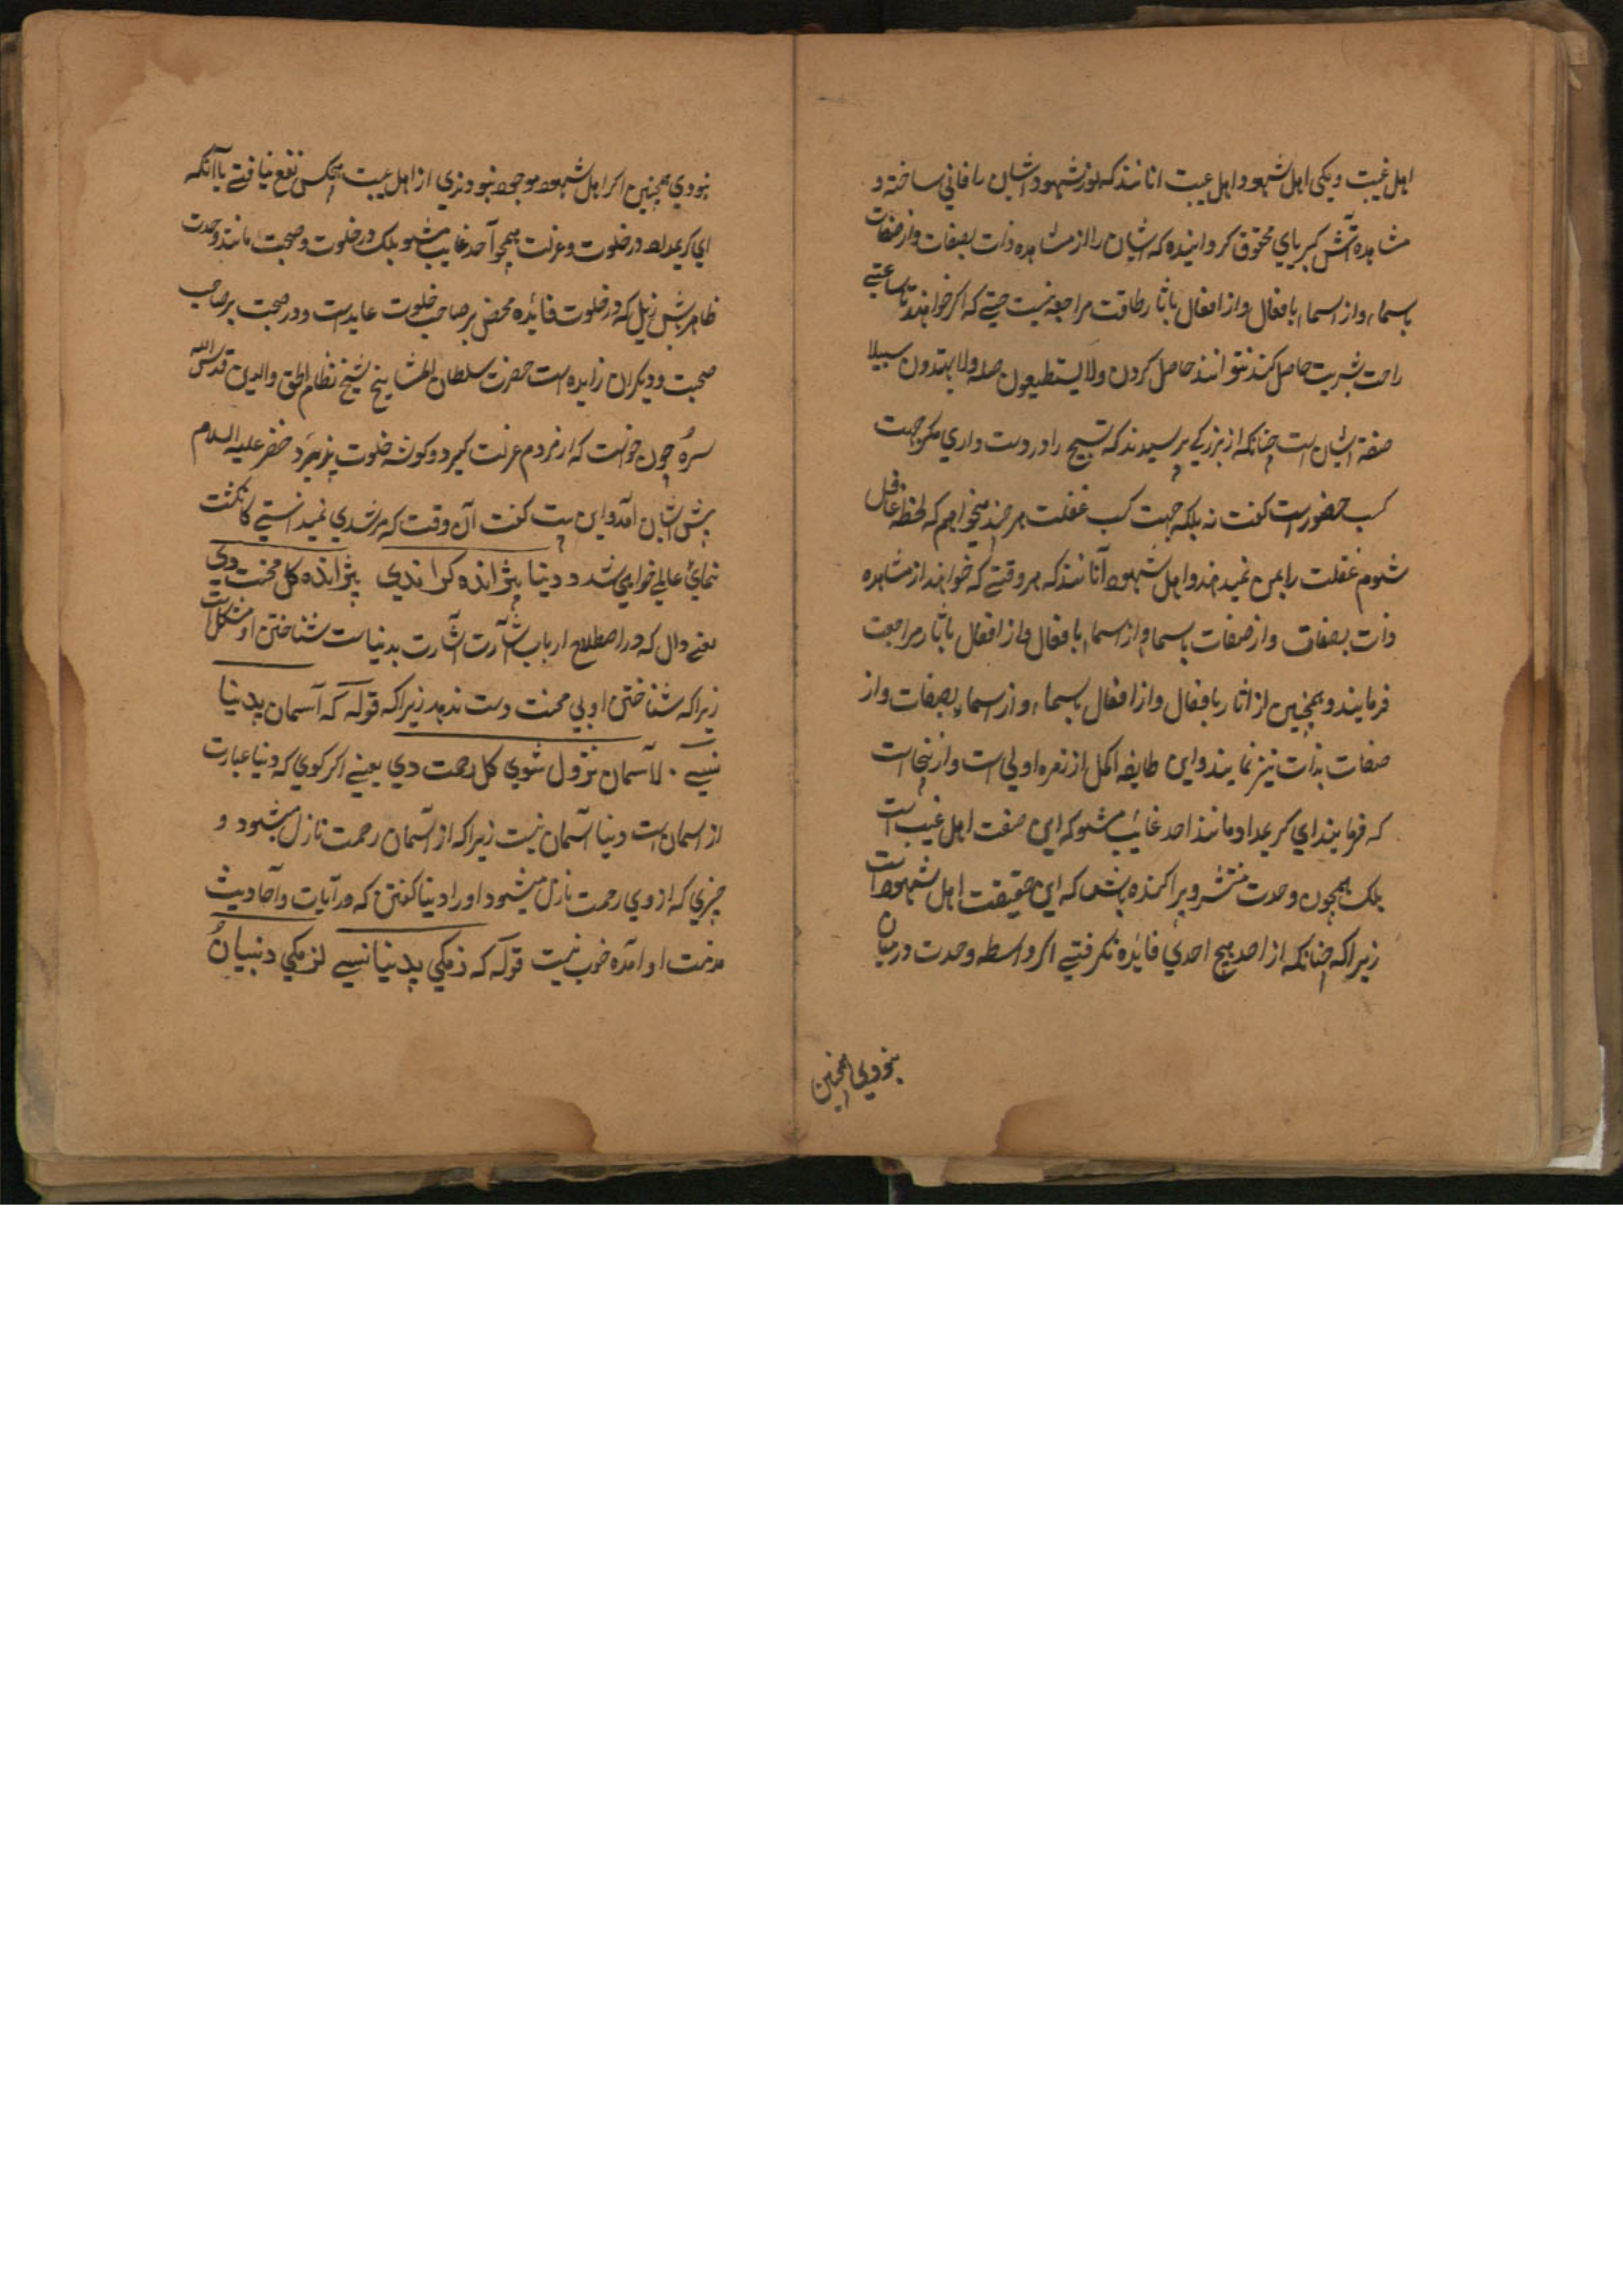 اهل غیبت و یکی اهل شهود و اهل غیبت انانند که نور شهود ایشان را فانی ساخته و
مشاهده آتش کبریای محقوق کردانیده که ایشان را از مشاهده ذات بصفات و از صفات
باسماء و از اسماء بافعال و از افعال باثار طاقت مراجعه نیست حتی که اکر خواهند تا ساعتی
راحت بشریت حاصل کنند نتوانند حاصل کردن و لا یستطیعون حیلة و لا یهتدون سبیلا
صفة ایشان است چنانکه از بزرکی پرسیدند که تسبیح را در دست داری مکر جهت
کسب حضور است کفت نه بلکه جهت کسب غفلت هر چند میخواهم که لحظه غافل
شوم غفلت را بمن نمیدهند و اهل شهود آنانند که هر وقتی که خواهند از مشاهده
ذات بصفات و از صفات باسما و از اسماء بافعال و از افعال باثار مراجعت
فرمایند و همچنین از اثار بافعال و از افعال باسماء و از اسماء بصفات و از
صفات بذات نیز نمایند و این طایفه اکمل از زمره اولی است و از ینجاست
که فرمایند ای کریمداد مانند احد غائب مشو که این صفت اهل غیب است
بلک همچون وحدت منتشر و پراکنده باش که این حقیقت اهل شهود است
زیرا که چنانکه از احد هیچ احدی فائده نکرفتی اکر واسطه وحدت درمیان
نبودی همچنین
نبودی همچنین اکر اهل شهود موجود نبودندی از اهل غیبت هیچکس نفع نیافتی یا آنکه
ای کریمداد در خلوت و عزلت همچو آحد غایب مشو بلک در خلوت و صحبت مانند وحدت
ظاهر باش زیرا که در خلوت فائده محض بر صاحب خلوت عایدست و در صحبت بر صاحب
صحبت و دیکران زایده است حضرت سلطان المشایخ شیخ نظام الحق والدین قدس الله
سره چون خواست که از مردم عزلت کیرد و کوشه خلوت پذیرد خضر علیه السلام
پیش ایشان آمد و این بیت کفت آن وقت که مه شدی نمیدانستی کانکشت
نمای عالمی خواهی شد د دینا پژاندہ کرا ندی پژاندہ کل محنت دی
یعنے دال که در اصطلاح ارباب اشارت اشارت بدنیاست شناختن او مشکل است
زیرا که شناختن او بی محنت دست ندهد زیرا که قوله که آسمان پدینا
نسی لاآسمان نزول شوی کل رحمت دی یعنے اکر کوی که دنیا عبارت
از اسمان است دنیا آسمان نیست زیرا که از آسمان رحمت نازل میشود و
چیزی که از وی رحمت نازل میشود او را دنیا کفتن که در آیات و آحادیث
مذمت او آمده خوب نیست قوله که ذمکی پدینا نسی لزمکی دنبیان